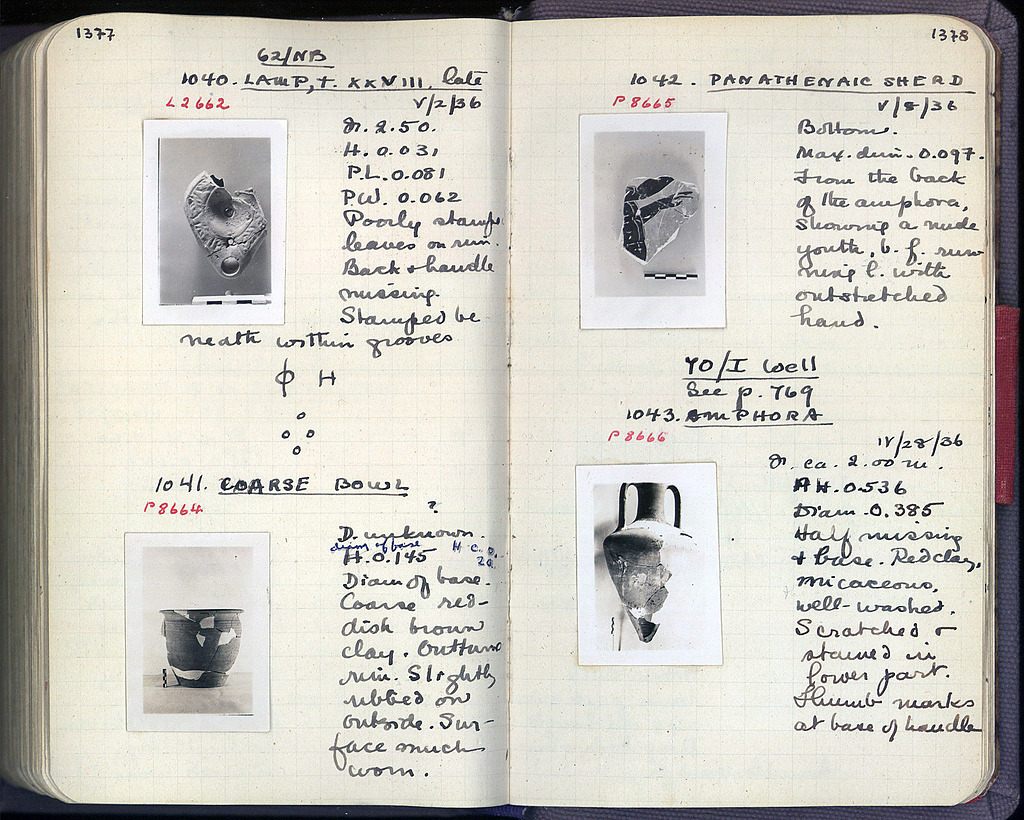 1377
62/NB
1040. LAMP, T. XXVIII, late
L 2662
V/2/36
D. 2.50.
H. 0.031
P.L. 0.081
PW. 0.062
Poorly stamp
leaves on rim.
Back + handle
missing.
Stamped be-
neath within grooves
Φ H
1041. COARSE BOWL
P 8664
?
D. unknown.
diam of base
H. 0.145
H c. 0.
20
Diam of base.
Coarse red-
dish brown
clay. Outturned
rim. Slightly
ribbed on
outside. Sur-
face much
worn.
1378
1042. PANATHENAIC SHERD
P 8665
V/8/36
Bottom.
Max. dim. 0.097.
From the back
of the amphora,
showing a nude
youth, b. f. run
ning l. with
outstretched
hand.
70/I Well
See p. 769
1043. AMPHORA
P 8666
IV/28/36
D. ca. 2.00 m.
H. 0.536
Diam. 0.385
Half missing
+ base. Red clay,
micaceous,
well-washed.
Scratched +
stained in
lower part.
Thumb marks
at base of handle